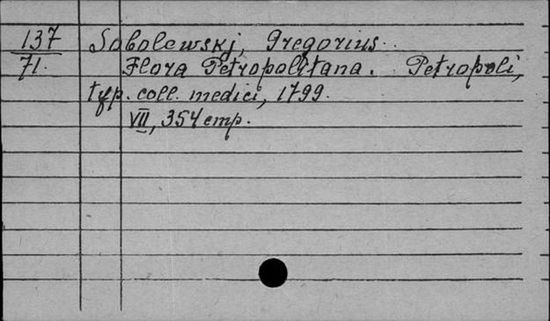 137 Sobolewskj, Gregorius.
71. Flora Petropolitana. Petropoli,
typ. coll. medici, 1799.
VII, 354 стр.